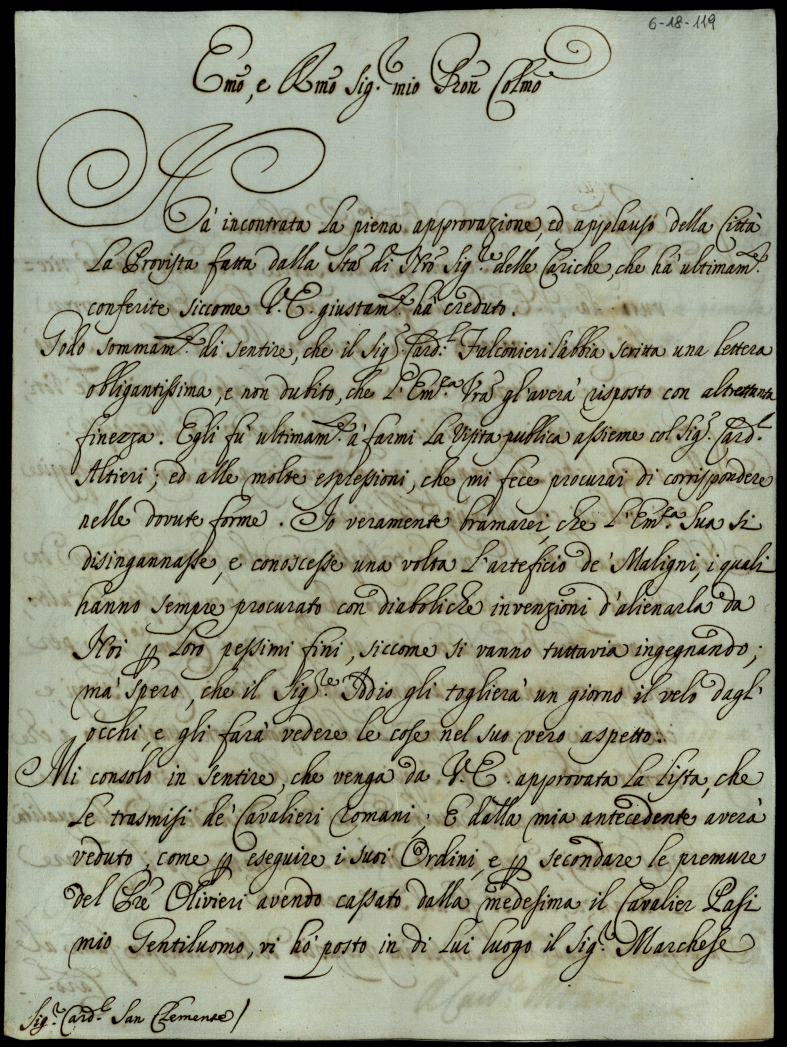 6-18-119
Emo, e Rmo Sig.r mio Pron Colmo
Hà incontrata la piena approvazione, ed applauso della Città
la Provista fatta dalla Sta di Nro Sig.re delle Cariche, che hà ultimam.te
conferite siccome V.E. giustam.te hà creduto.
Godo sommam.te di sentire, che il Sig.r Card.l Falconieri l'abbia scritta una lettera
obligantissima, e non dubito, che l'Em.za Vra gl'averà risposto con altrettanta
finezza. Egli fù ultimam.te à farmi la Visita publica assieme col Sig.r Card.l
Altieri; ed alle molte espressioni, che mi fece procurai di corrispondere
nelle dovute forme. Io veramente bramarei, che l'Em.za Sua si
disingannasse, e conoscesse una volta l'arteficio de' Maligni, i quali
hanno sempre procurato con diaboliche invenzioni d'alienarla da
Noi p loro pessimi fini, siccome si vanno tuttavia ingegnando;
mà spero, che il Sig.re Iddio gli toglierà un giorno il velo dagl'
occhi, e gli farà vedere le cose nel suo vero aspetto.
Mi consolo in sentire, che venga da V.E. approvata la Lista, che
le trasmisi de' Cavalieri Romani; E dalla mia antecedente averà
veduto, come p eseguire i suoi Ordini, e p secondare le premure
del Pre Olivieri avendo cassato dalla medesima il Cavalier Pasi
mio Gentiluomo, vi hò posto in di lui luogo il Sig.r Marchese
Sig.r Card.l San Clemente /